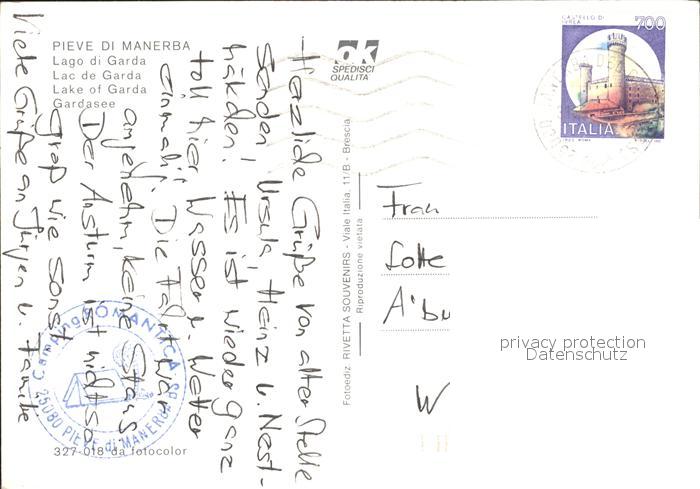 PIEVE DI MANERBA
Lago di Garda
Lac de Garda
Lake of Garda
Gardasee
ok
SPEDISCI
QUALITÀ
CASTELLO DI
IVREA
700
ITALIA
Herzliche Grüße von alter Stelle
senden Ursula, Heinz u. Nest-
häkchen! Es ist wieder ganz
toll hier Wasser u. Wetter
einmalig. Die Fahrt war
angenehm, keine Staus
Der Ansturm ist nicht so
groß wie sonst
Viele Grüße an Jürgen u. Familie
Fotoediz. RIVETTA SOUVENIRS - Viale Italia, 11/B - Brescia
Riproduzione vietata
Frau
Lotte
W
privacy protection
Datenschutz
Camping ROMANTICA
25080 PIEVE di MANERBA BS
327-018 da fotocolor